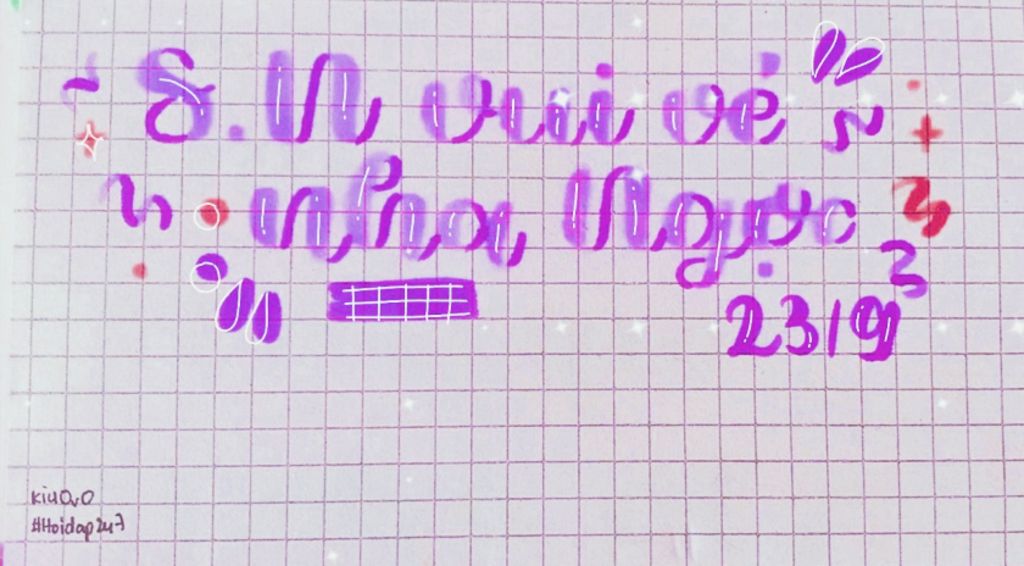 S.N vui vẻ
nha Ngọc
23/9
kiu0v0
#Hoidap247